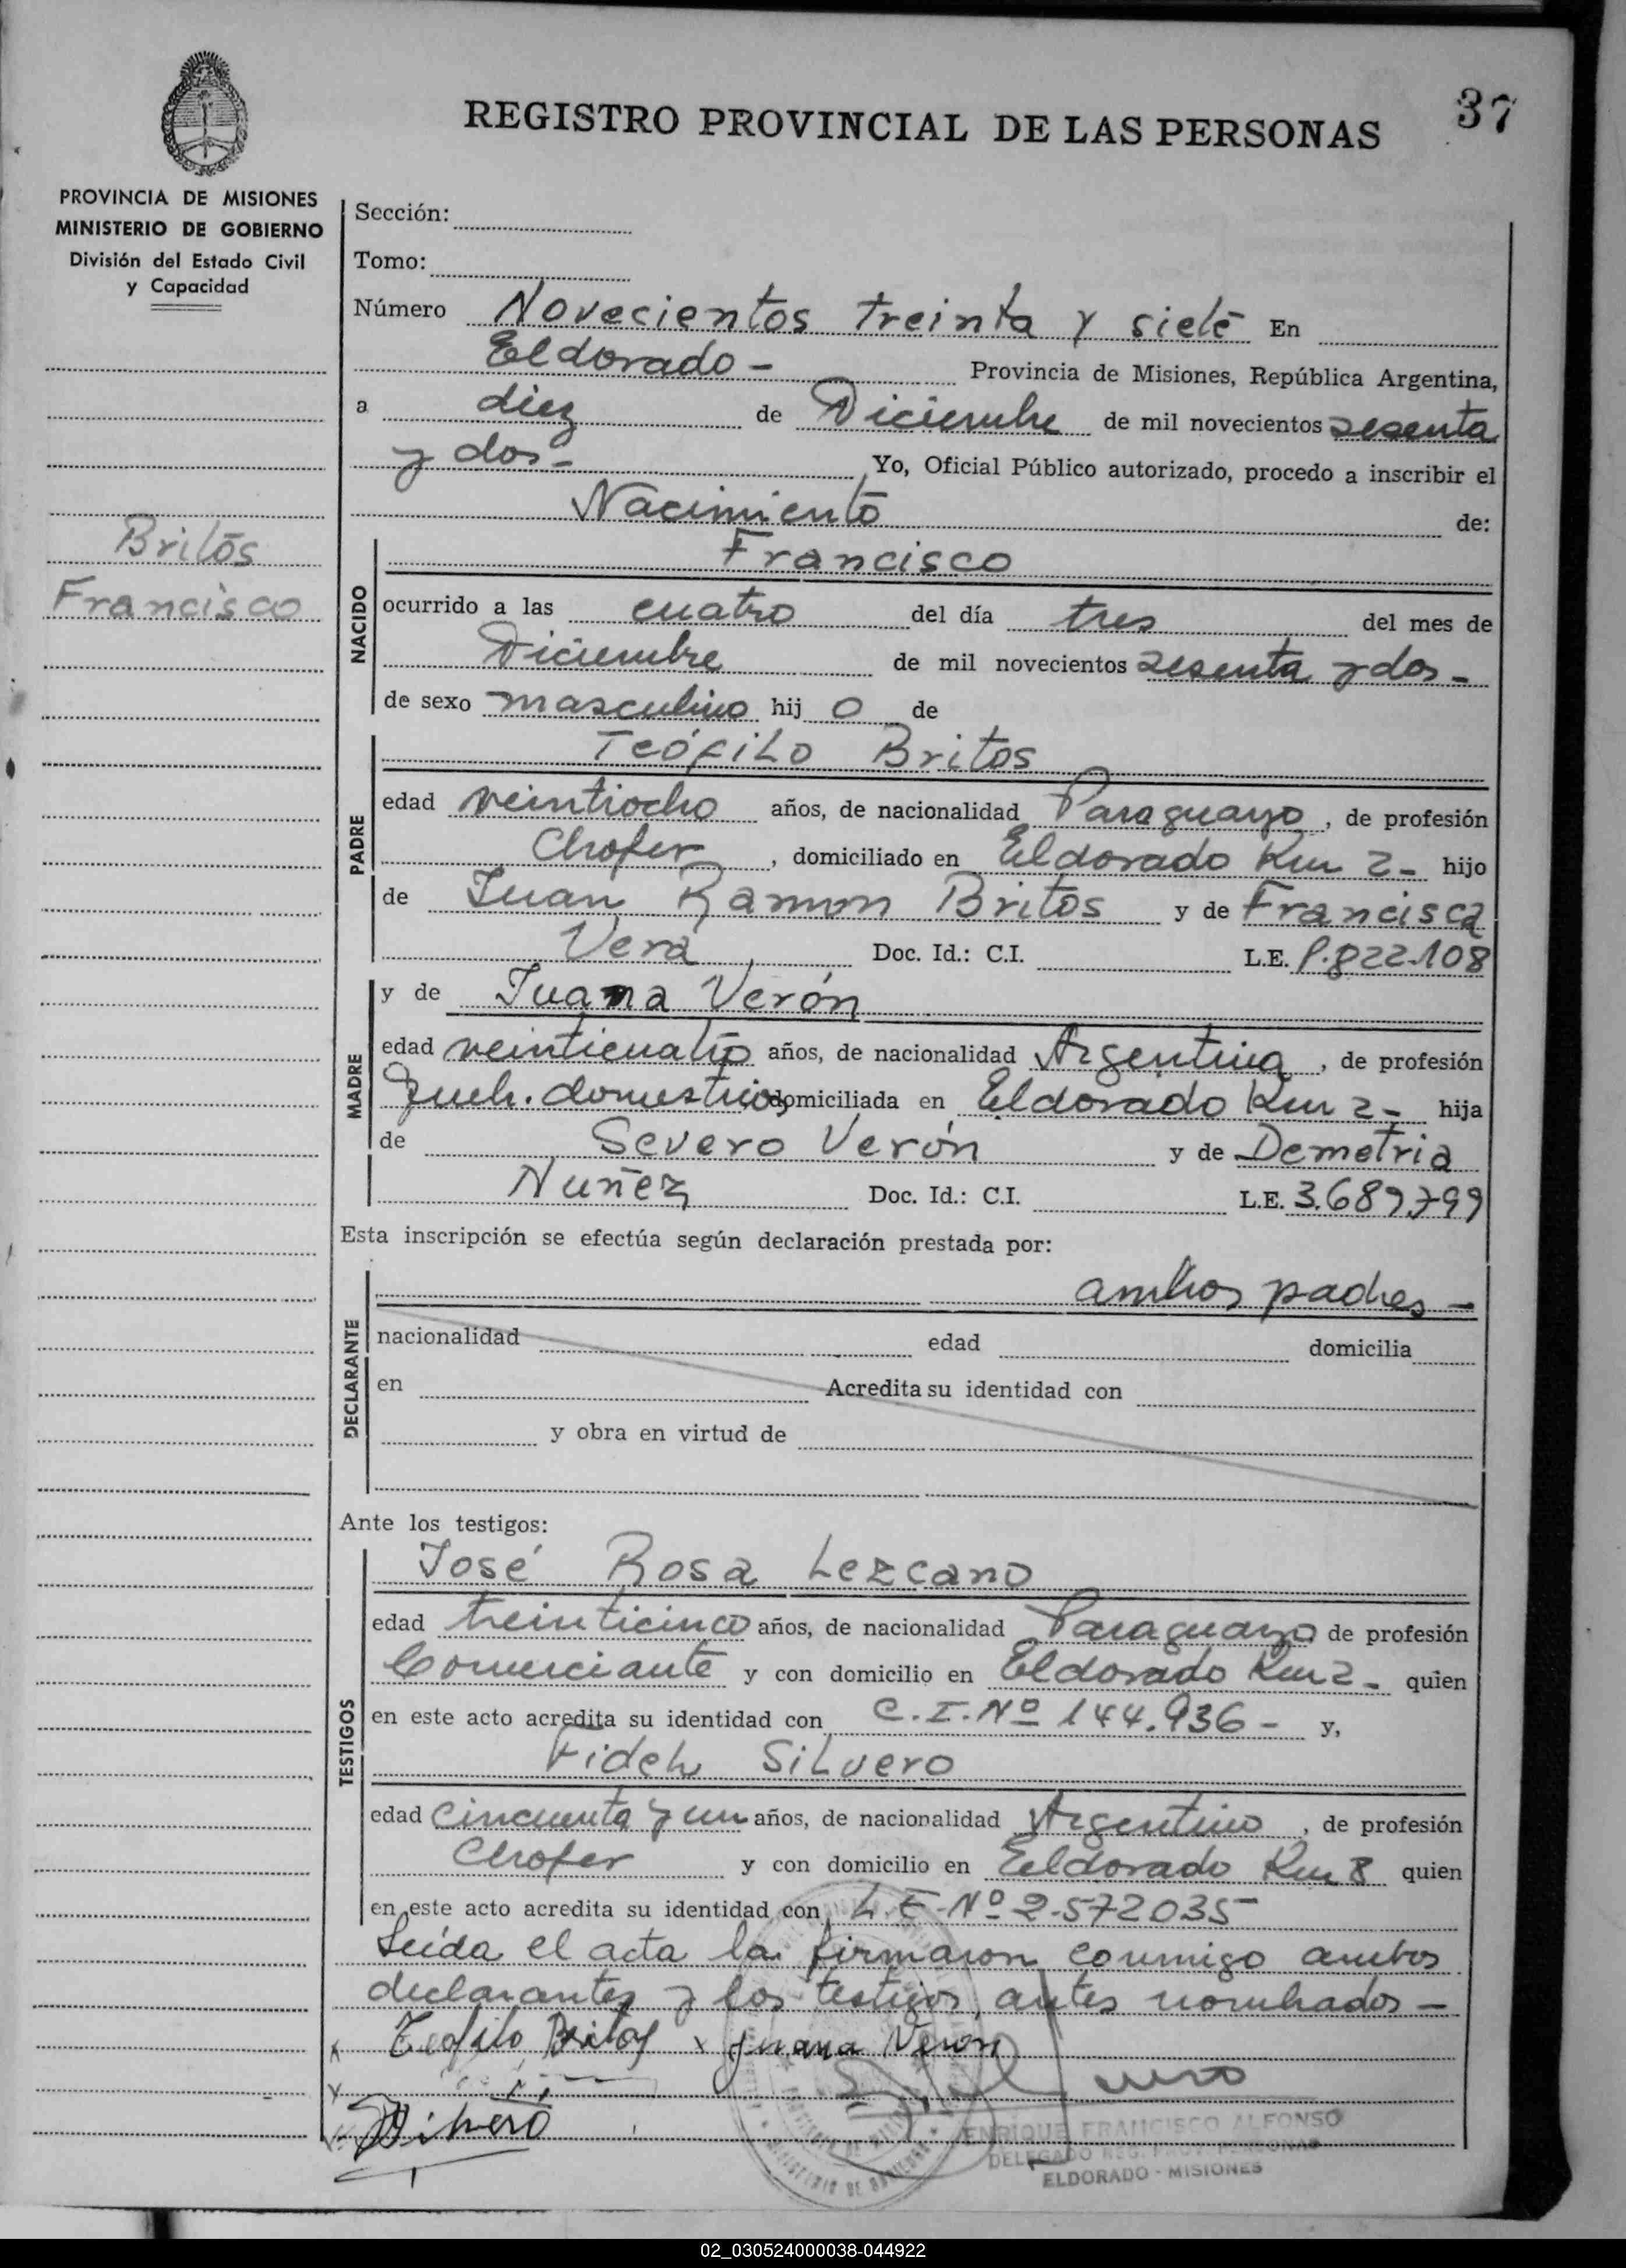 37
REGISTRO PROVINCIAL DE LAS PERSONAS
PROVINCIA DE MISIONES
MINISTERIO DE GOBIERNO
División del Estado Civil
y Capacidad
Britos
Francisco
Sección:
Tomo:
Número Novecientos treinta y siete En
Eldorado - Provincia de Misiones, República Argentina,
a diez de Diciembre de mil novecientos sesenta
y dos - Yo, Oficial Público autorizado, procedo a inscribir el
Nacimiento de:
NACIDO
Francisco
ocurrido a las cuatro del día tres del mes de
Diciembre de mil novecientos sesenta y dos -
de sexo masculino hij o de
PADRE
Teófilo Britos
edad veintiocho años, de nacionalidad Paraguayo, de profesión
Chofer, domiciliado en Eldorado Km 2 - hijo
de Juan Ramon Britos y de Francisca
Vera Doc. Id.: C.I. L.E. P.822.108
MADRE
y de Juana Verón
edad veinticuatro años, de nacionalidad Argentina, de profesión
Queh. domesticos domiciliada en Eldorado Km 2 - hija
de Severo Verón y de Demetria
Nuñez Doc. Id.: C.I. L.E. 3.689.799
Esta inscripción se efectúa según declaración prestada por:
DECLARANTE
ambos padres -
nacionalidad edad domicilia
en Acredita su identidad con
y obra en virtud de
Ante los testigos:
TESTIGOS
José Rosa Lezcano
edad treinticinco años, de nacionalidad Paraguayo de profesión
Comerciante y con domicilio en Eldorado Km 2 - quien
en este acto acredita su identidad con C.I. Nº 144.936 - y,
Silvero
edad cincuenta y un años, de nacionalidad Argentino, de profesión
Chofer y con domicilio en Eldorado Km 8 quien
en este acto acredita su identidad con L.E. Nº 2.572035
Leída el acta la firmaron conmigo ambos
declarantes y los testigos, antes nombrados -
x Teofilo Britos x Juana Verón
ENRIQUE FRANCISCO ALFONSO
DELEGADO REG. PROV. PERSONAS
ELDORADO - MISIONES
02_030524000038-044922